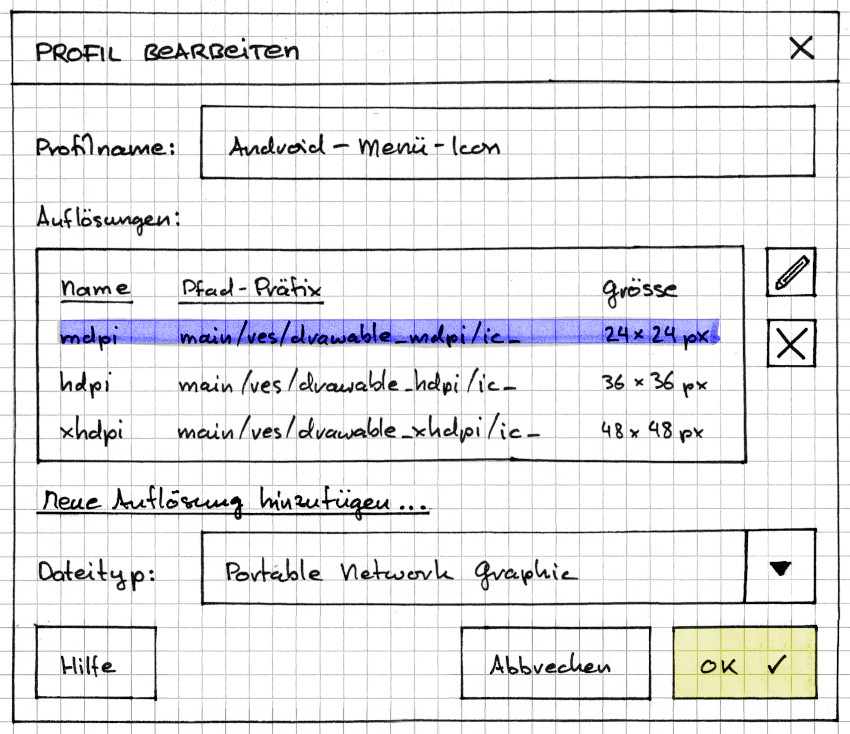 PROFIL BEARBEITEN
Profilname: Android-Menü-Icon
Auflösungen:
Name Pfad-Präfix Grösse
mdpi main/res/drawable_mdpi/ic_ 24×24 px
hdpi main/res/drawable_hdpi/ic_ 36×36 px
xhdpi main/res/drawable_xhdpi/ic_ 48×48 px
Neue Auflösung hinzufügen...
Dateityp: Portable Network Graphic
Hilfe Abbrechen OK ✓